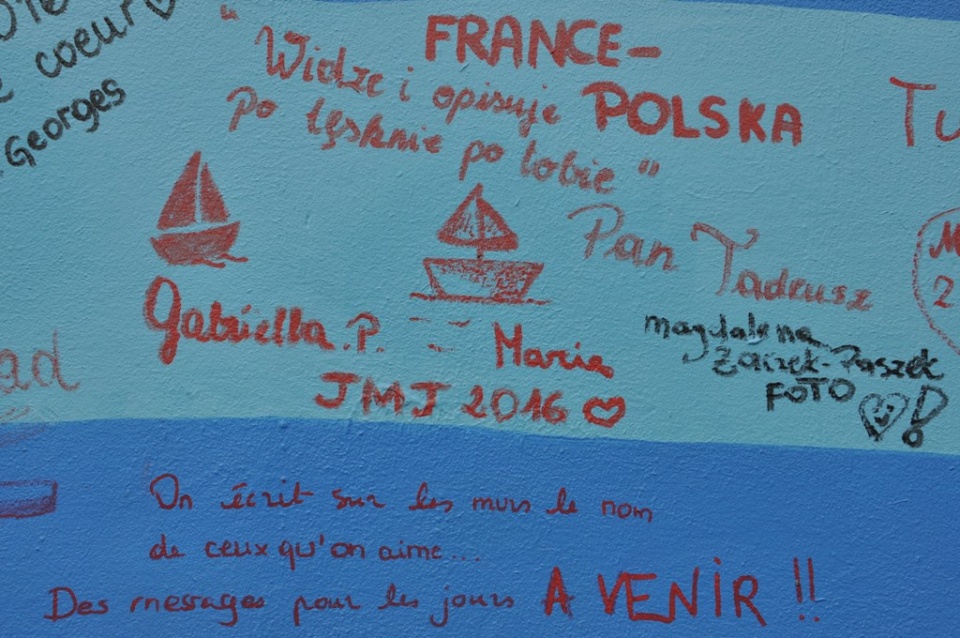 coeur
Georges
FRANCE-
" Widzę i opisuję
POLSKA
Po tęsknie po tobie "
Pan Tadeusz
Gabriella .P.
Maria
JMJ 2016
magdalena
FOTO
ad
On écrit sur les murs le nom
de ceux qu'on aime...
Des messages pour les jours A VENIR !!